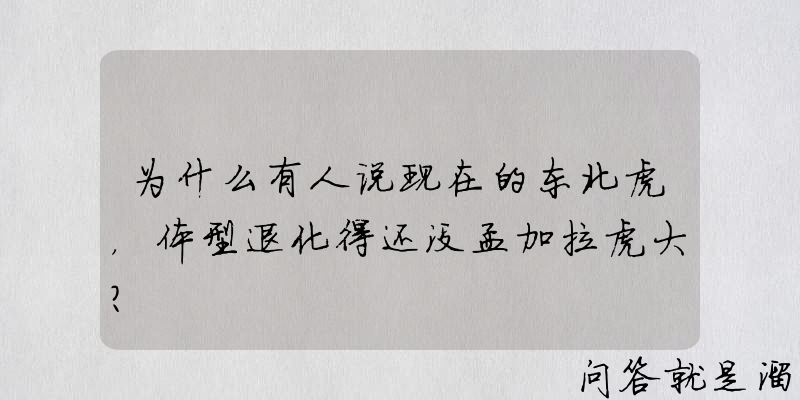 为什么有人说现在的东北虎
，体型退化得还没孟加拉虎大
？
问答就是溜